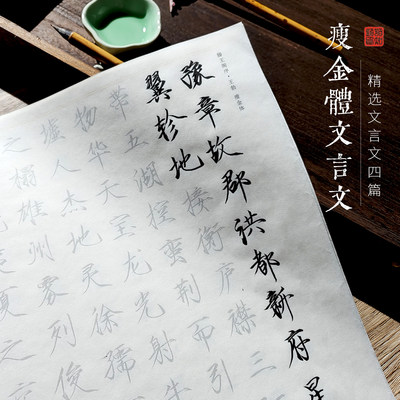 瘦金體文言文
精选文言文四篇
豫章故郡洪都新府星
翼轸地接衡庐襟三
带五湖控蛮荆而引
物华天宝龙光射牛
墟人杰地灵徐孺
之榻雄洲雾列俊
夏之